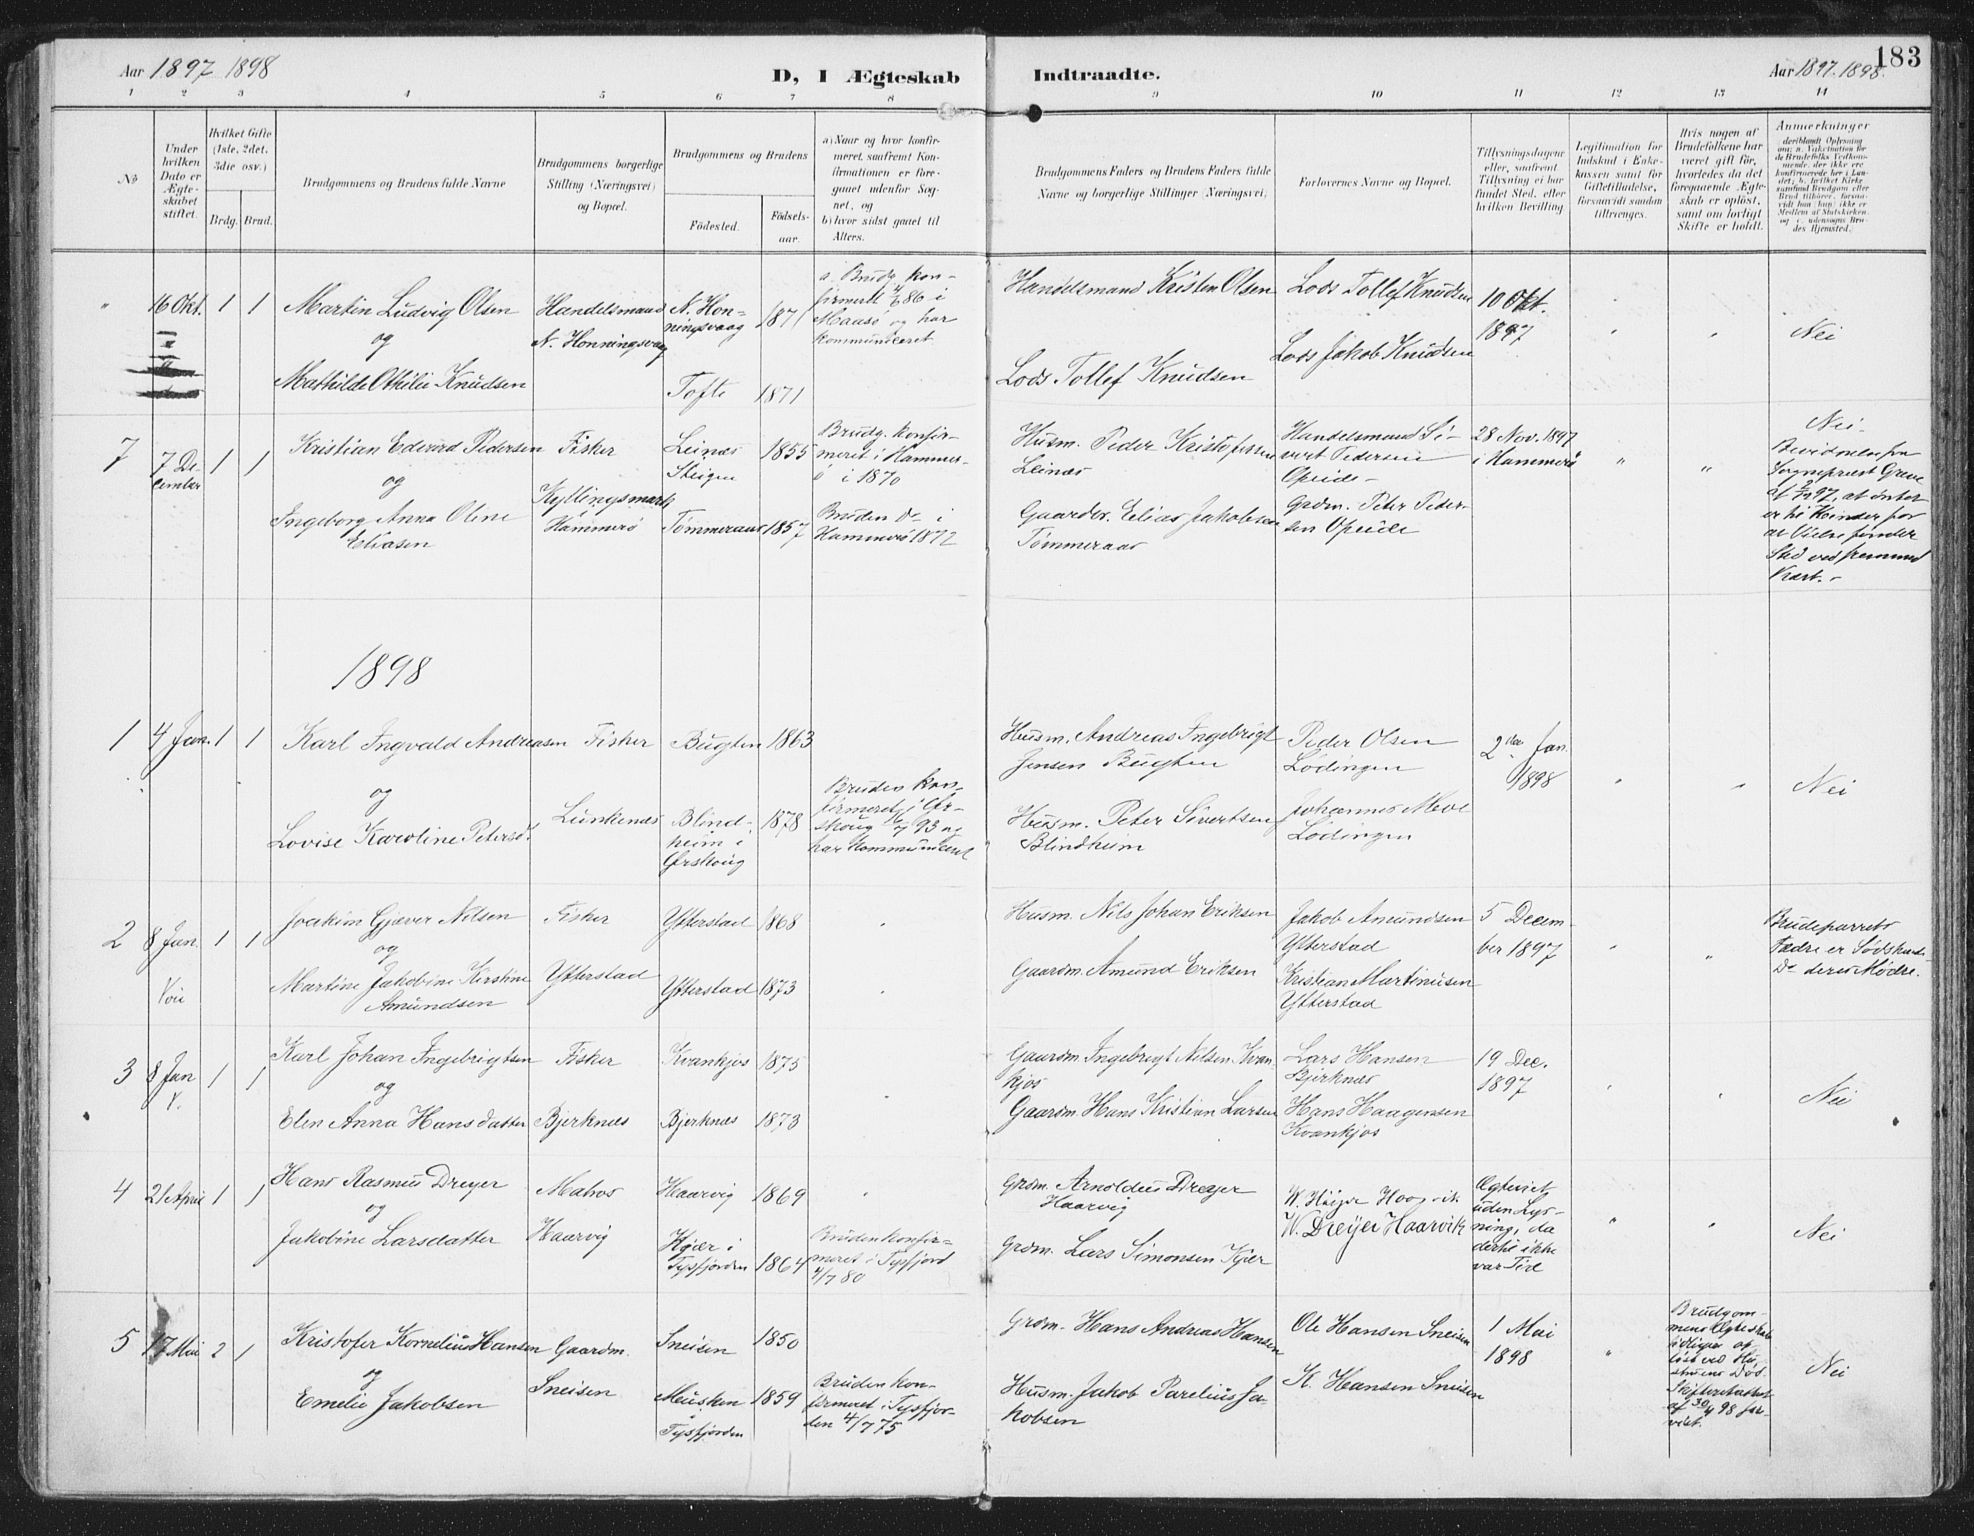 Aar 1897 1898
D, I Ægteskab Indtraadte.
Aar 1897. 1898.
183
1 2 3 4 5 6 7 8 9 10 11 12 13 14
No
Under hvilken Dato er Ægteskabet stiftet.
Hvilket Gifte (1ste, 2det, 3die osv.)
Brdg. Brud.
Brudgommens og Brudens fulde Navne
Brudgommens borgerlige Stilling (Næringsvei) og Bopæl.
Brudgommens og Brudens
Fødested.
Fødselsaar.
a) Naar og hvor konfirmeret, saafremt Konfirmationen er foregaaet udenfor Sognet, og
b) hvor sidst gaaet til Alters.
Brudgommens Faders og Brudens Faders fulde Navne og borgerlige Stillinger (Næringsvei).
Forlovernes Navne og Bopæl.
Tillysningsdagene eller, saafremt Tillysning ei har fundet Sted, efter hvilken Bevilling
Legitimation for Indskud i Enkekassen samt for Giftetilladelse, forsaavidt saadan tiltrænges.
Hvis nogen af Brudefolkene har været gift før, hvorledes da det foregaaende Ægteskab er opløst, samt om lovligt Skifte er holdt.
Anmerkninger
" 16 Okt. 1 1
Martin Ludvig Olsen
og
Mathilde Othilie Knudsen
Handelsmand
N. Honningsvaag
N. Honningsvaag 1871
Tofte 1871
a. Brudg. konfirmert 86 i Maasø og har kommuniceret
Handelsmand Kristen Olsen
Lods Tollef Knudsen
Lods Tollef Knudsen
Lods Jakob Knudsen
10 Okt. 1897
" "
Nei
7 7 December 1 1
Kristian Edvard Pedersen
og
Ingeborg Anna Oline Eliasen
Fisker
Kyllingsmark, Hammerö
Leinæs Steigen 1855
Tømmeraas 1857
Brudg. konfirmeret i Hammerö i 1870
Bruden Do i Hammerö 1872
Husm. Peder Kristofersen Leinæs
Gaardbr. Elias Jakobsen Tømmeraas
Handelsmand Sivert Pedersen Opeide
Grdm. Peter Pedersen Opeide
28 Nov. 1897 i Hammerö
" "
Nei.
Bevidnelse fra Sogneprest Greve af 97, at intet er til Hinder for at Vielse finder Sted ved fremmed Præst.
1898
1 4 Jan. 1 1
Karl Ingvald Andreasen
og
Lovise Karoline Petersd.
Fisker
Lunkenæs
Bugten 1863
Blindheim i Ørskoug 1878
Bruden konfirmeret i Ørskoug 93 og har kommuniceret
Husm. Andreas Ingebrigt Jensen Bugten
Husm. Peter Sivertsen Blindheim
Peder Olsen Lødingen
Johannes Moe Lødingen
2den Jan. 1898
" "
Nei
2 8 Jan. 1 1
Joakim Gjæver Nilsen
og
Martine Jakobine Kirstine Amundsen
Fisker
Ytterstad
Ytterstad 1868
Ytterstad 1873
Husm. Nils Johan Eriksen
Gaardm. Amund Eriksen
Jakob Amundsen Ytterstad
Kristian Martinusen Ytterstad
5 December 1897
" "
Brudeparrets Fædre er Sødskende
Do deres Mødre.
3 8 Jan 1 1
Karl Johan Ingebrigtsen
og
Elen Anna Hansdatter
Fisker
Bjerknæs
Kvankjos 1875
Bjerknæs 1873
Gaardm. Ingebrigt Nilsen Kvankjos
Gaardm. Hans Kristian Larsen
Lars Hansen Bjerknæs
Hans Haagensen Kvankjos
19 Dec. 1897
" "
Nei
4 21 April 1 1
Hans Rasmus Dreyer
og
Jakobine Larsdatter
Matros
Haarvig
Haarvig 1869
Kjær i Tysfjorden 1864
Bruden konfirmeret i Tysfjord 4/7 80
Grdm. Arnoldus Dreyer Haarvig
Grdm. Lars Simonsen Kjær
W. Dreyer Haarvik
Ægteviet uden Lysning, da dertil ikke var Tid
" "
Nei
5 17 Mai 2 1
Kristofer Kornelius Hansen
og
Emelie Jakobsen
Gaardm.
Sneisen
Sneisen 1850
Musken i Tysfjorden 1859
Bruden konfirmeret i Tysfjorden 4/7 75
Grdm. Hans Andreas Hansen
Husm. Jakob Parelius Jakobsen
Ole Hansen Sneisen
K. Hansen Sneisen
1 Mai 1898
"
Brudgommens Ægteskab tidligere opløst ved Hustruens Død. Skifteretsattest af 30/4 98 forevist.
Nei